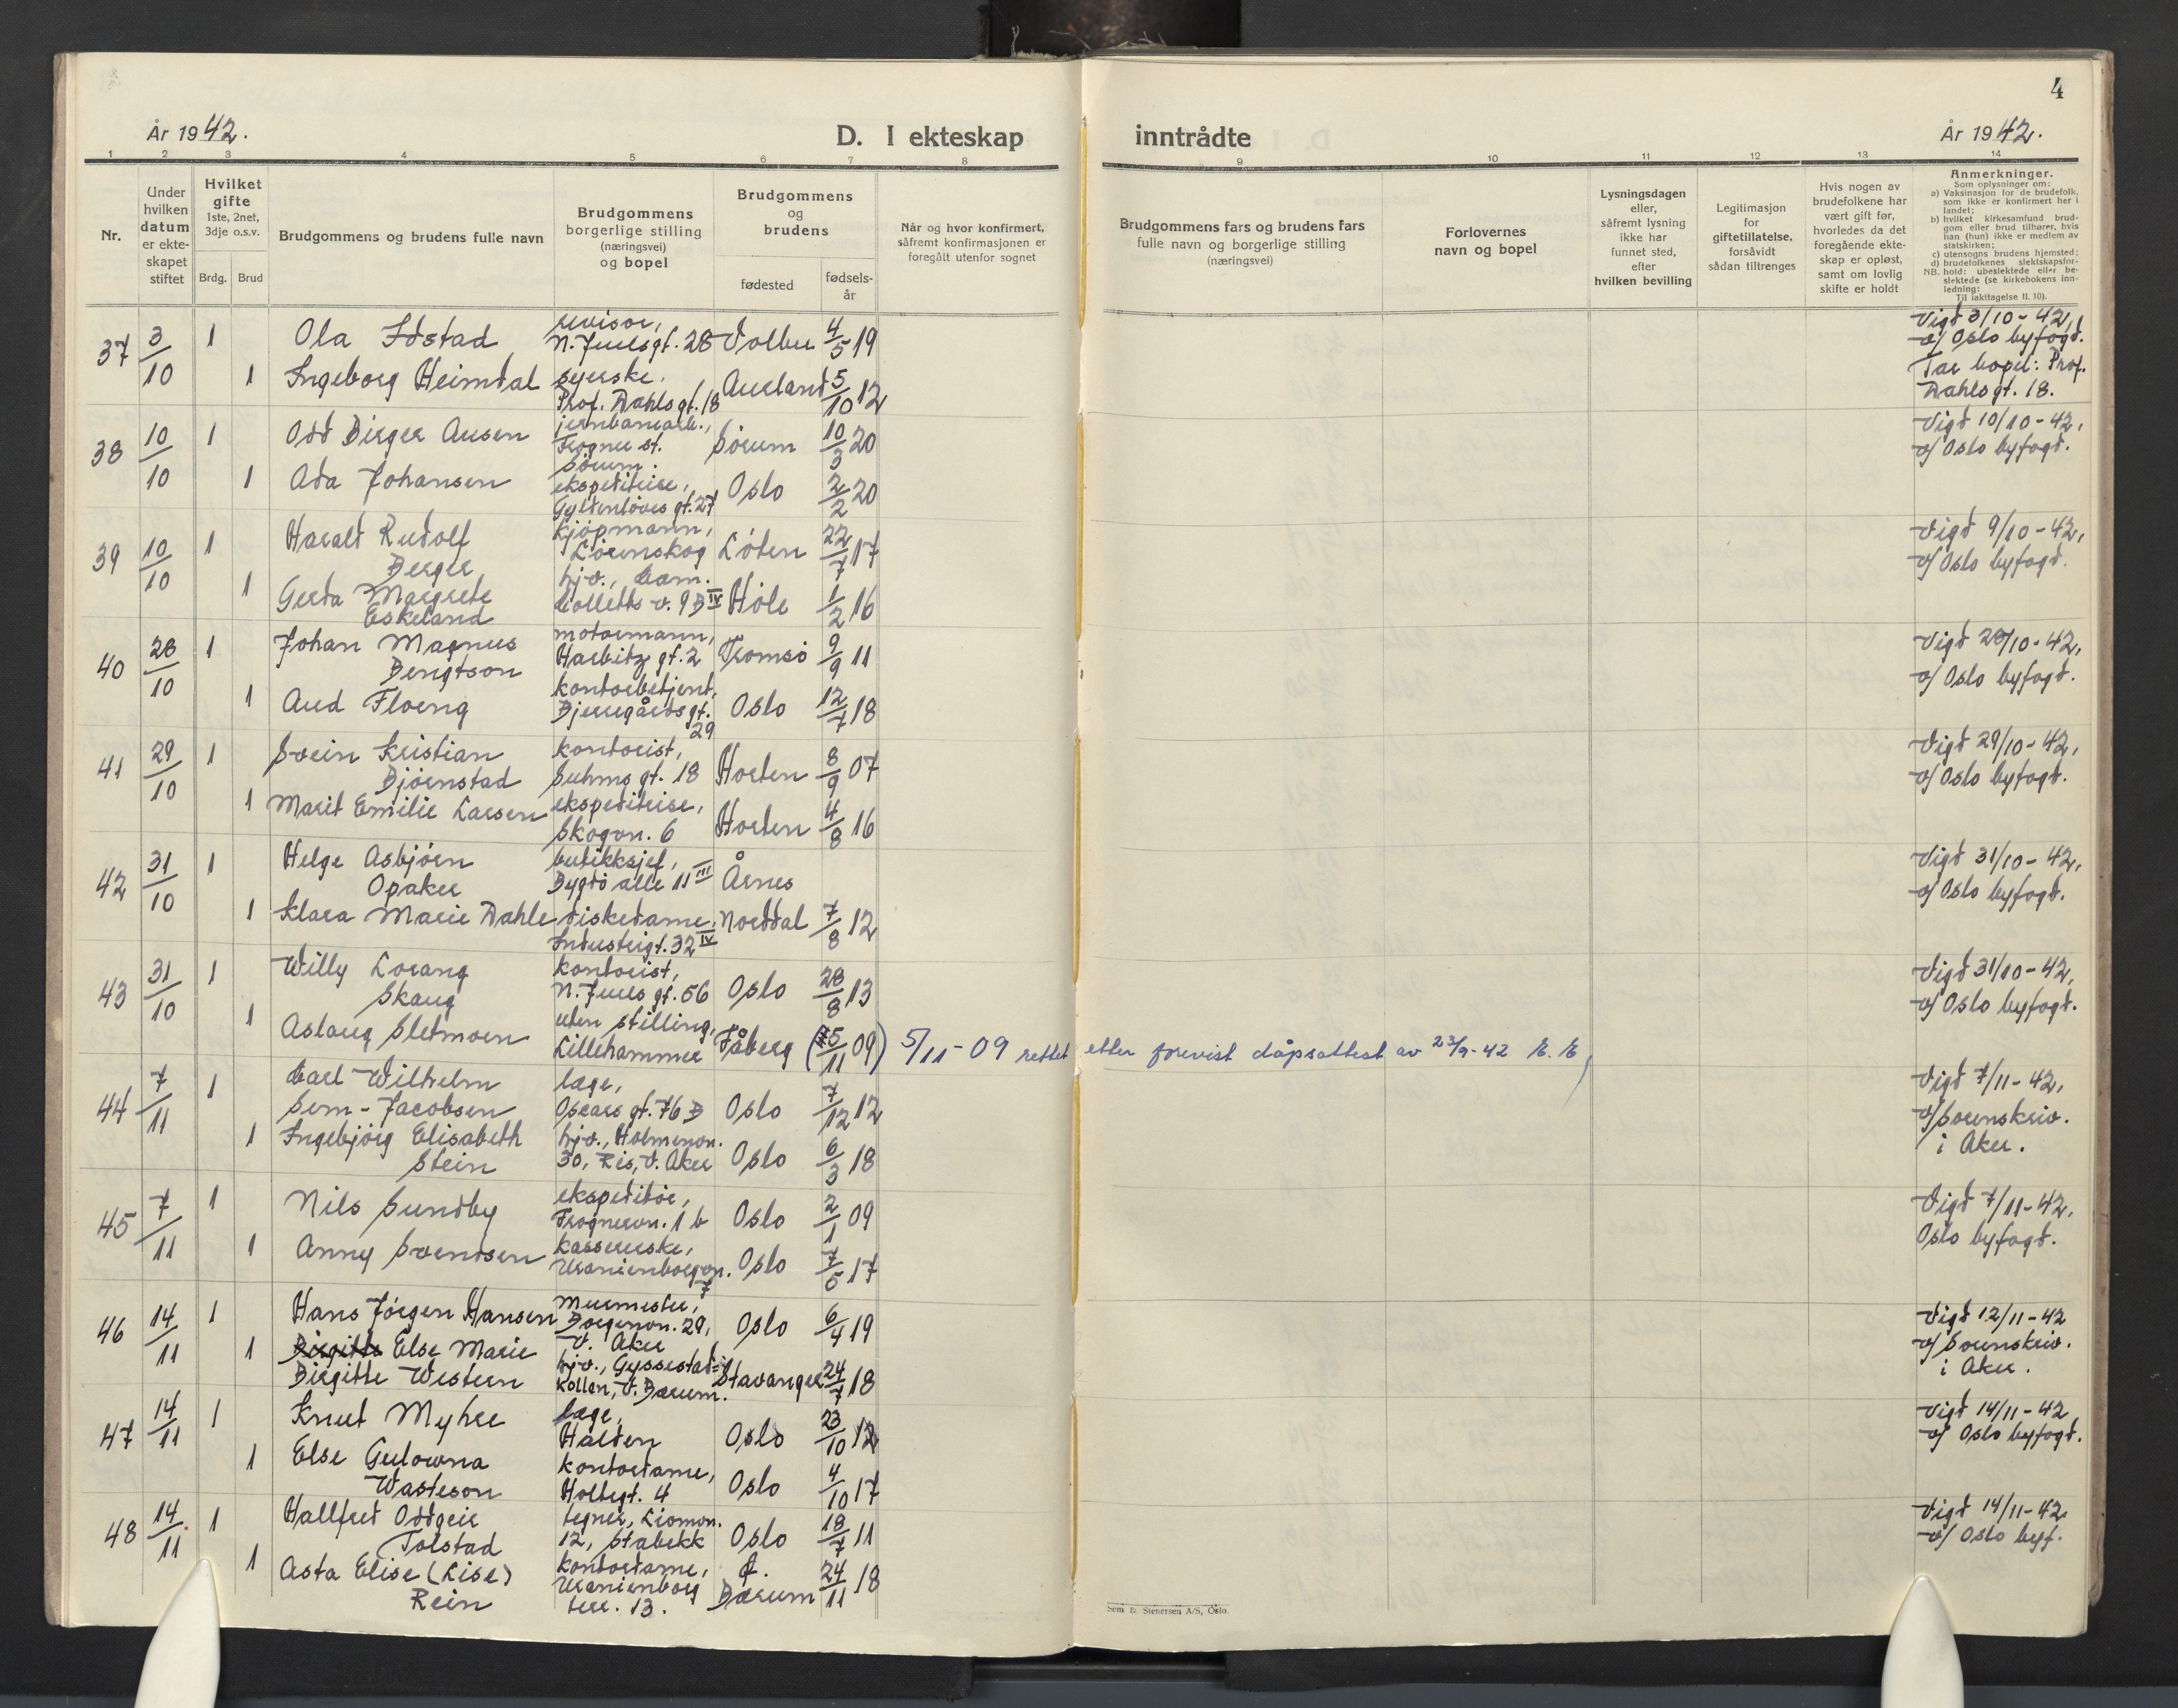 4
År 1942.
D. I ekteskap inntrådte
År 1942.
1 2 3 4 5 6 7 8 9 10 11 12 13 14
Nr.
Under hvilken datum er ekteskapet stiftet
Hvilket gifte 1ste, 2net, 3dje o.s.v.
Brdg. Brud
Brudgommens og brudens fulle navn
Brudgommens borgerlige stilling (næringsvei) og bopel
Brudgommens og brudens
fødested
fødselsår
Når og hvor konfirmert, såfremt konfirmasjonen er foregått utenfor sognet
Brudgommens fars og brudens fars fulle navn og borgerlige stilling (næringsvei)
Forlovernes navn og bopel
Lysningsdagen eller, såfremt lysning ikke har funnet sted, efter hvilken bevilling
Legitimasjon for giftetillatelse, forsåvidt sådan tiltrenges
Hvis nogen av brudefolkene har vært gift før, hvorledes da det foregående ekteskap er opløst, samt om lovlig skifte er holdt
Anmerkninger.
Som oplysninger om:
a) Vaksinasjon for de brudefolk, som ikke er konfirmert her i landet;
b) hvilket kirkesamfund brudgom eller brud tilhører, hvis han (hun) ikke er medlem av statskirken;
c) utensogns brudens hjemsted;
d) brudefolkenes slektskapsforhold: ubeslektede eller beslektede (se kirkebokens innledning:
NB. Til iakttagelse II. 10).
37 3/10 1 Ola Idstad revisor, N. Juelsgt. 28 Volbu 4/5 19 Vigd 3/10-42, v/ Oslo byfogd.
1 Ingeborg Heimdal syerske, Prof. Dahls gt. 18 Aurland 5/10 12 Tar bopel: Prof. Dahls gt. 18.
38 10/10 1 Odd Birger Ausen jernbanearb., Frogner st. Sørum. Sørum 10/3 20 Vigd 10/10-42, v/ Oslo byfogd.
1 Ada Johansen ekspeditrise, Gyldenløves gt. 27 Oslo 2/2 20
39 10/10 1 Harald Rudolf Berger kjøpmann, Lørenskog Løten 22/7 17 Vigd 9/10-42, v/ Oslo byfogd.
1 Gerda Margrete Eskeland hjv., Cam. Colletts v. 9 B IV Høle 1/2 16
40 28/10 1 Johan Magnus Bengtson motormann, Harbitz gt. 2 Tromsø 9/9 11 Vigd 28/10-42, v/ Oslo byfogd.
1 Aud Floeng kontorbetjent, Bjerregårds gt. 29 Oslo 12/7 18
41 29/10 1 Svein Kristian Bjørnstad kontorist, Suhms gt. 18 Horten 8/9 07 Vigd 29/10-42, v/ Oslo byfogd.
1 Marit Emilie Larsen ekspeditrise, Skogvn. 6 Horten 4/8 16
42 31/10 1 Helge Asbjørn Opaker butikksjef, Bygdø alle 11 III Årnes Vigd 31/10-42, v/ Oslo byfogd.
1 Klara Marie Dahle diskedame, Industrigt. 32 IV Norddal 7/8 12
43 31/10 1 Willy Lorang Skaug kontorist, N. Juels gt. 56 Oslo 28/8 13 Vigd 31/10-42, v/ Oslo byfogd.
1 Aslaug Sletmoen uten stilling, Lillehammer Fåberg (5/11 09) 5/11-09 rettet etter forevist dåpsattest av 23/9-42 E. E
44 7/11 1 Carl Wilhelm Sem-Jacobsen lege, Oscars gt. 76 B Oslo 7/12 12 Vigd 7/11-42, v/ Sorenskriv. i Aker.
1 Ingebjørg Elisabeth Stein hjv., Holmenvn. 30, Ris, V. Aker Oslo 6/3 18
45 7/11 1 Nils Sundby ekspeditør, Frognervn. 1 b Oslo 2/1 09 Vigd 7/11-42, Oslo byfogd.
1 Anny Svendsen kassererske, Uranienborgvn. 7 Oslo 7/5 17
46 14/11 1 Hans Jørgen Hansen murmester, Borgenvn. 29, V. Aker Oslo 6/4 19 Vigd 12/11-42 v/ Sorenskriv. i Aker.
1 Birgitte Else Marie Birgitte Western hjv., Gyssestadkollen, V. Bærum. Stavanger 24/7 18
47 14/11 1 Knut Myhre lege, Halden Oslo 23/10 12 Vigd 14/11-42 v/ Oslo byfogd.
1 Else Gulowna Wasteson kontordame, Holtegt. 4 Oslo 4/10 17
48 14/11 1 Hallfred Oddgeir Tolstad tegner, Liomvn. 12, Stabekk Oslo 18/7 11 Vigd 14/11-42 v/ Oslo byf.
1 Asta Elise (Lise) Rein kontordame, Uranienborg terr. 13. Bærum 24/11 18
Sem & Stenersen A/S, Oslo.